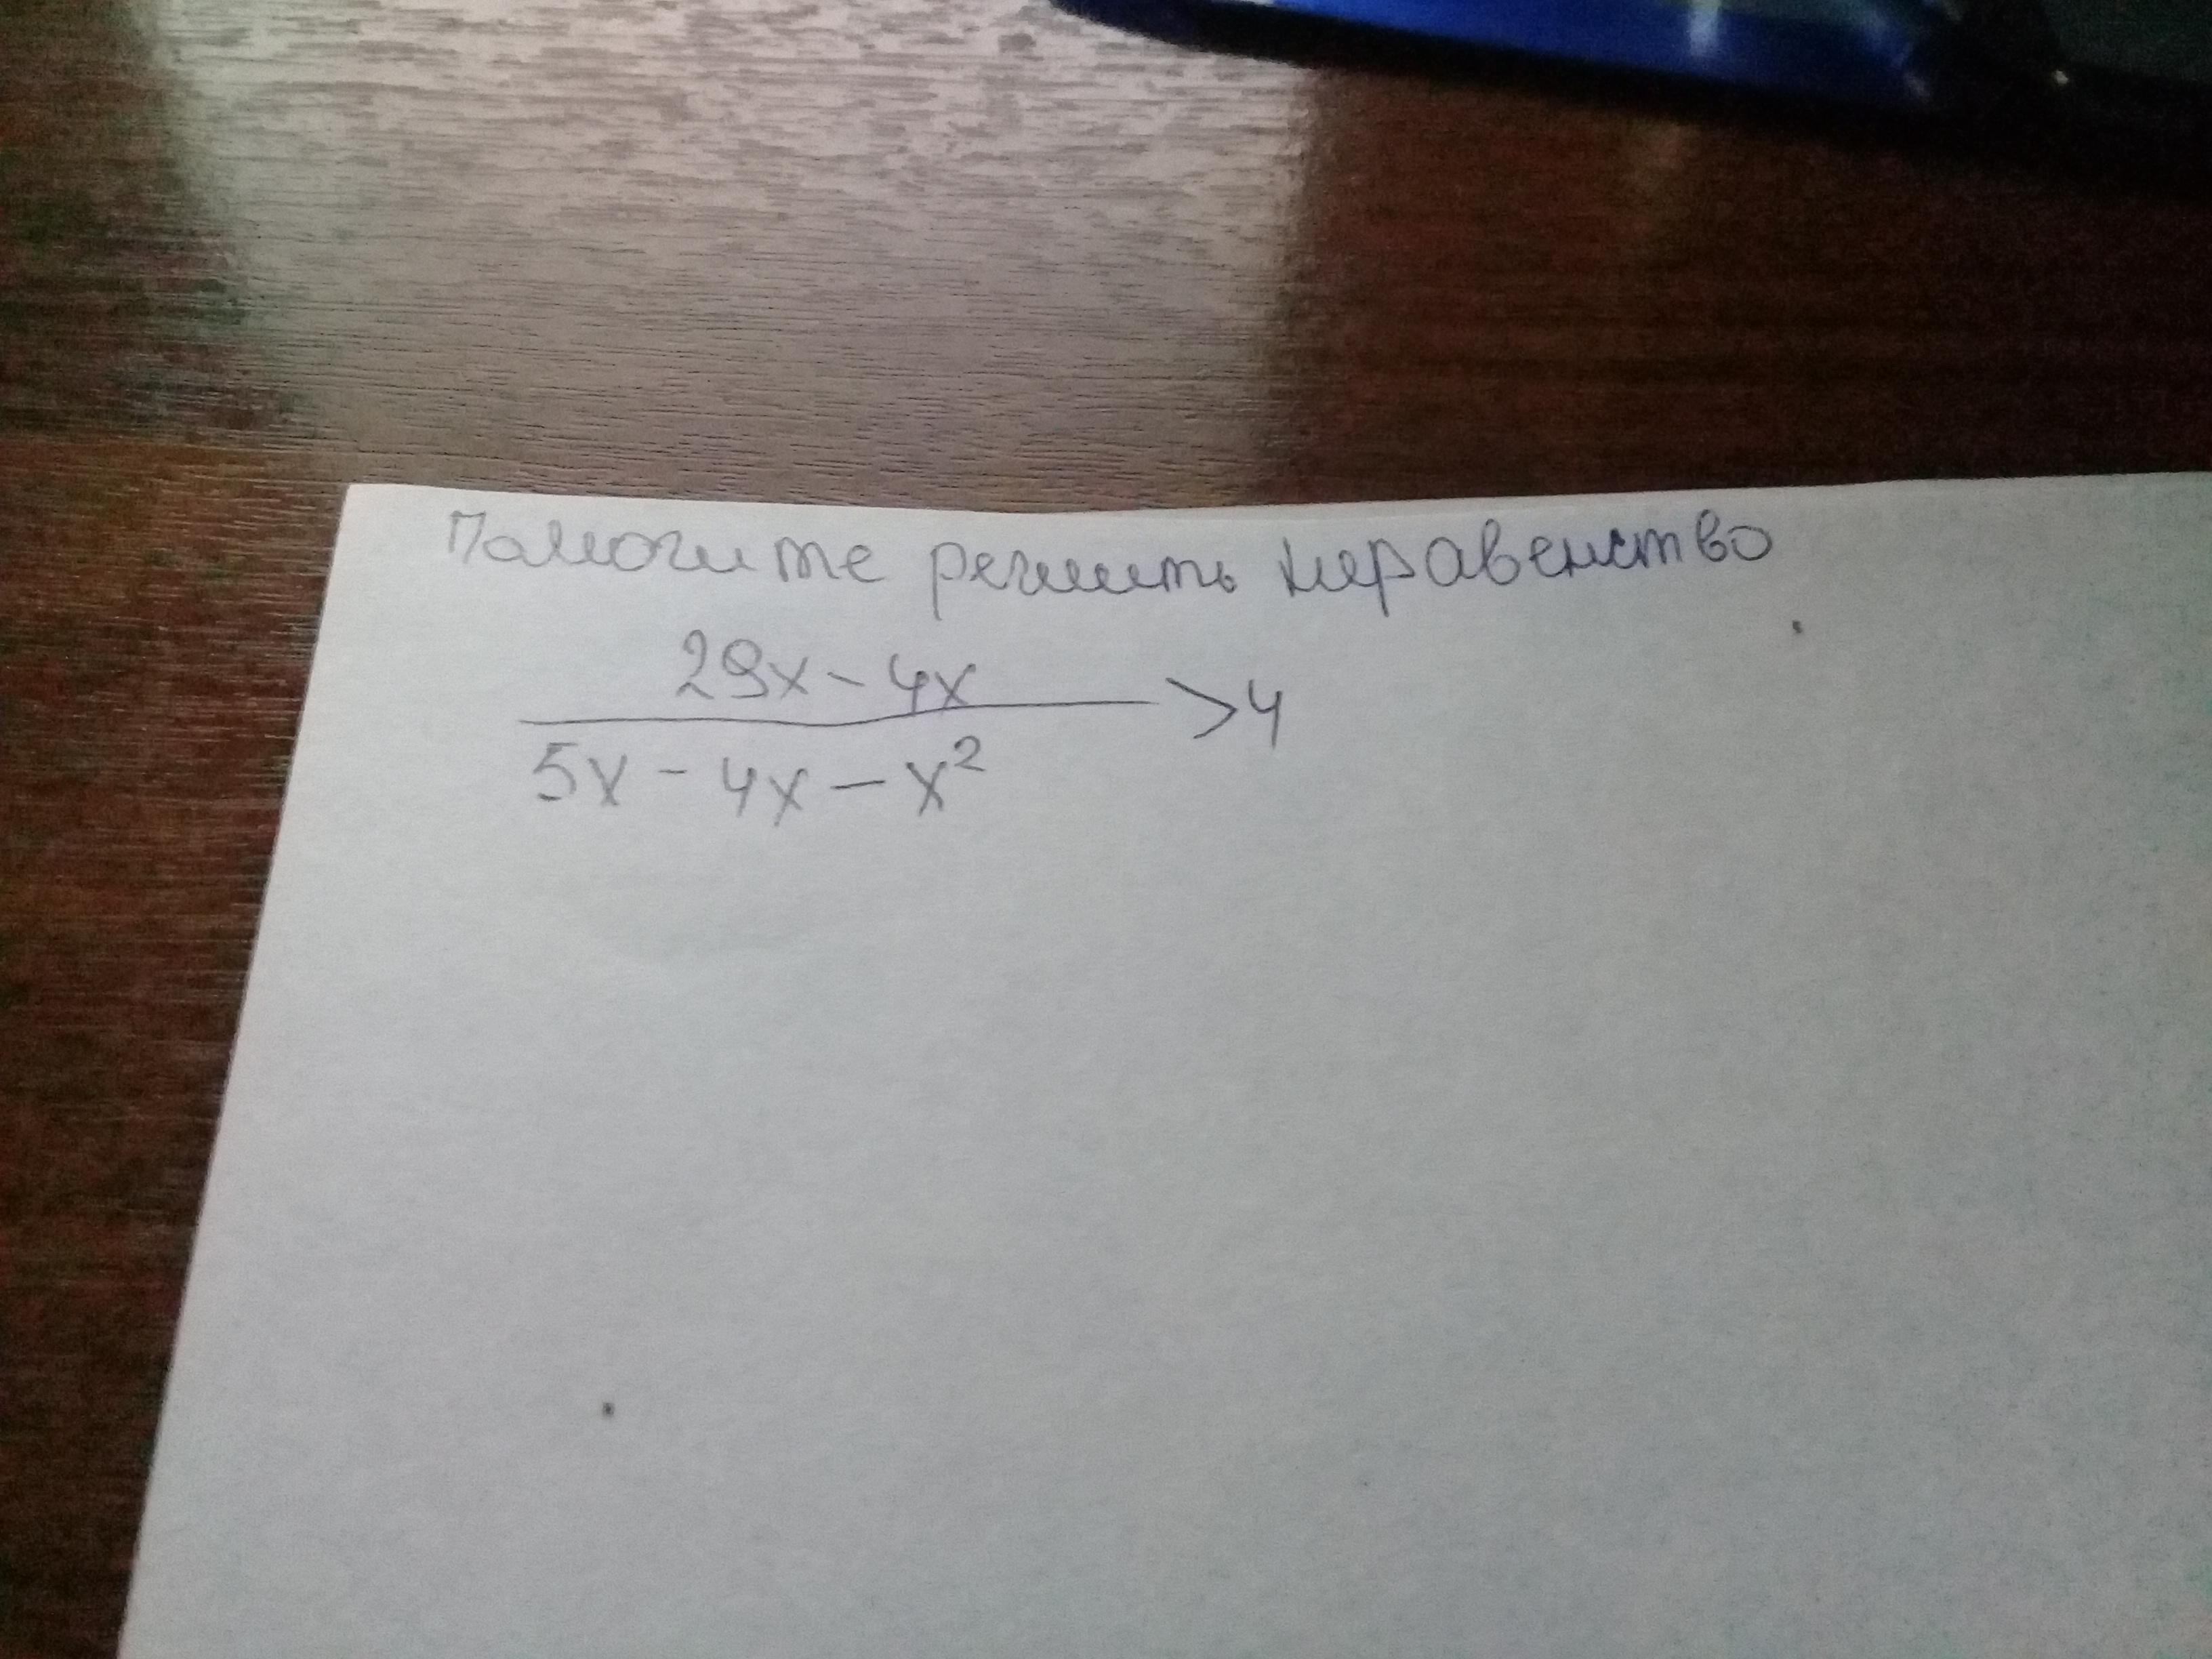 Помогите решить неравенство
29x - 4x
> 4
5x - 4x - x²